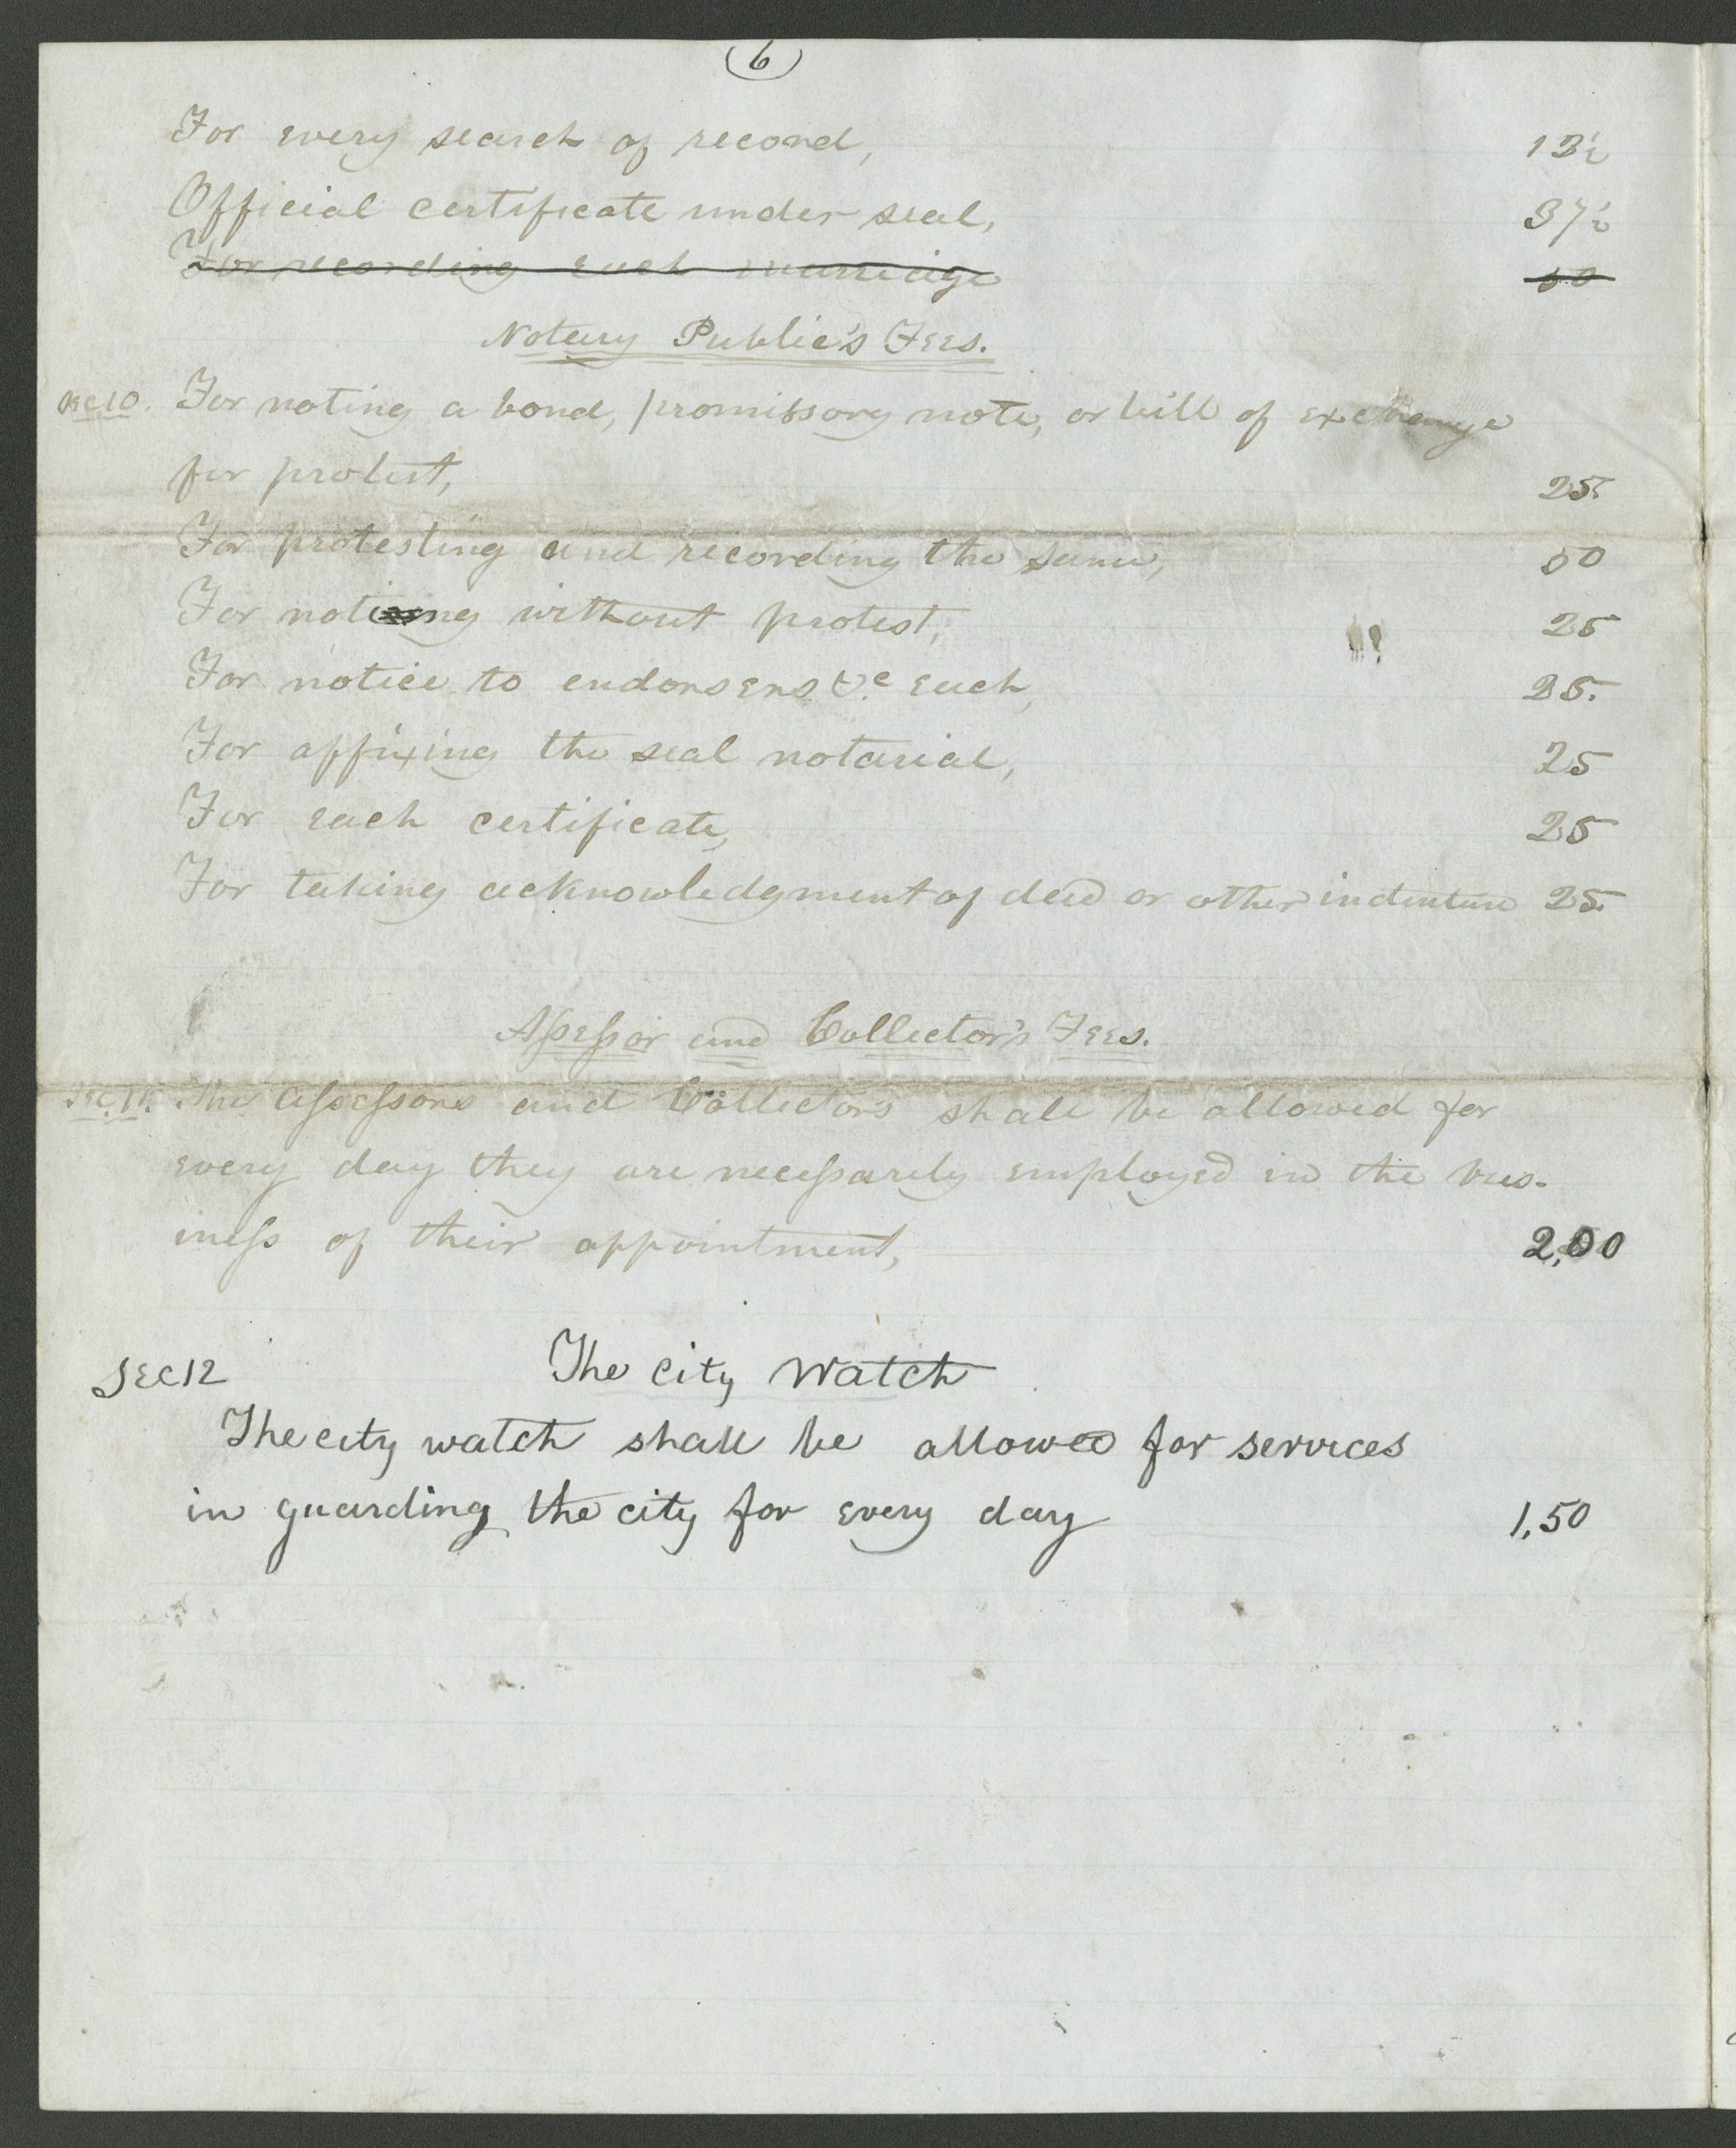 6
For every search of record, 12½
Official certificate under seal, 37½
For recording each marriage 50
Notary Public's Fees.
Sec 10. For noting a bond, promissory note, or bill of exchange
for protest, 25
For protesting and recording the same, 50
For noting without protest, 25
For notice to endorsers &c each, 25.
For affixing the seal notarial, 25
For each certificate, 25
For taking acknowledgment of deed or other indenture 25.
Assessor and Collector's Fees.
Sec. 11. The assessors and Collectors shall be allowed for
every day they are necessarily employed in the bus-
iness of their appointment, 2,00
Sec 12 The City Watch
The city watch shall be allowed for services
in guarding the city for every day 1,50